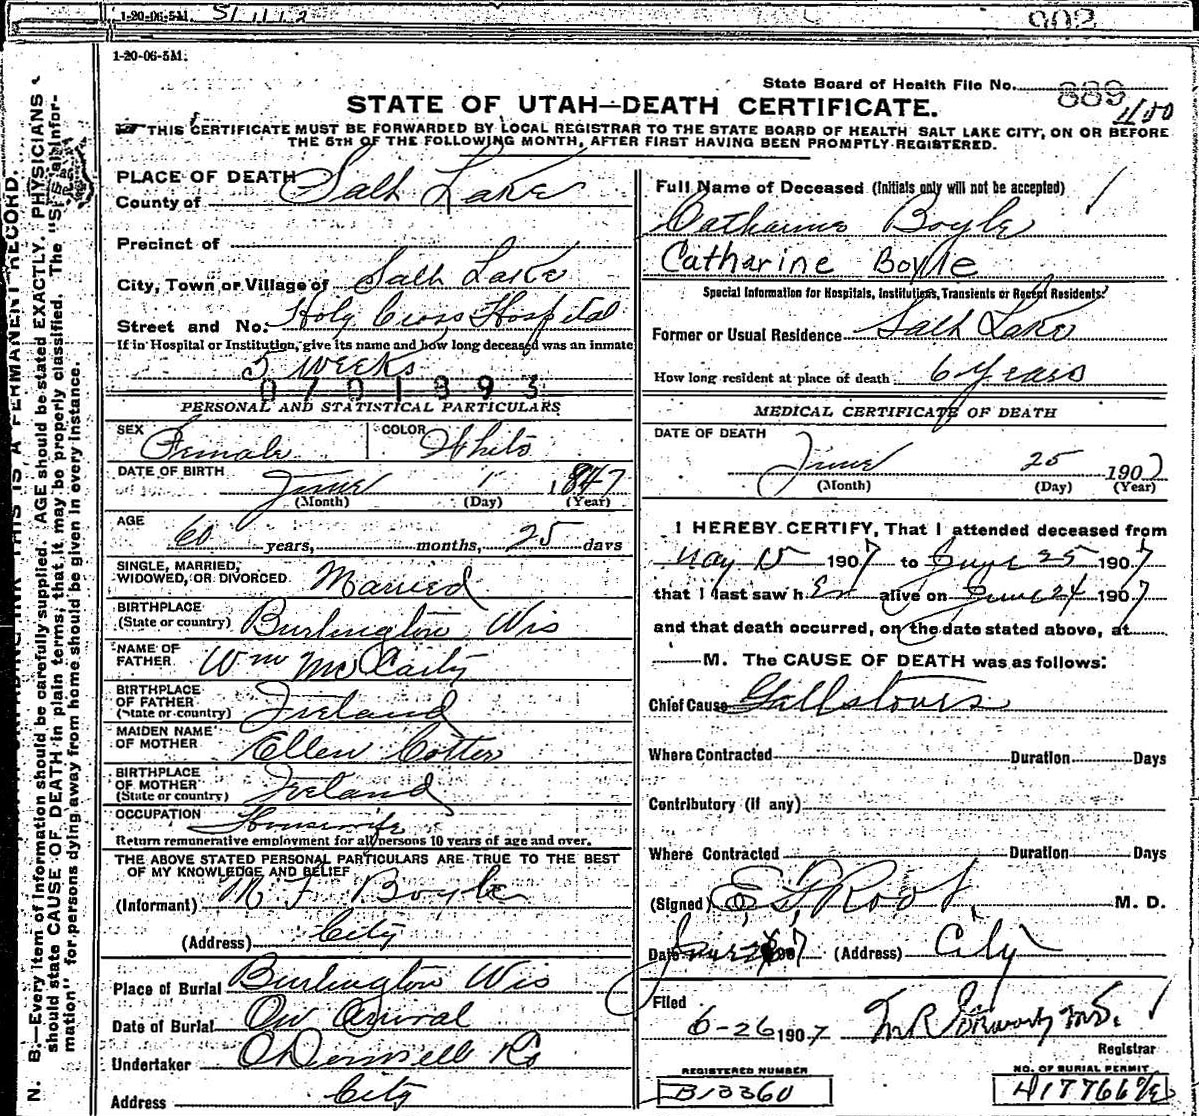 1-20-06-5M.
1-20-06-5M.
State Board of Health File No. 889
STATE OF UTAH—DEATH CERTIFICATE.
THIS CERTIFICATE MUST BE FORWARDED BY LOCAL REGISTRAR TO THE STATE BOARD OF HEALTH SALT LAKE CITY, ON OR BEFORE
THE 5TH OF THE FOLLOWING MONTH, AFTER FIRST HAVING BEEN PROMPTLY REGISTERED.
PLACE OF DEATH
County of Salt Lake
Precinct of
City, Town or Village of Salt Lake
Street and No. Holy Cross Hospital
If in Hospital or Institution, give its name and how long deceased was an inmate
5 Weeks
0701893
PERSONAL AND STATISTICAL PARTICULARS
SEX Female COLOR White
DATE OF BIRTH June 1 1847
(Month) (Day) (Year)
AGE 60 years, months, 25 days
SINGLE, MARRIED,
WIDOWED, OR DIVORCED Married
BIRTHPLACE
(State or country) Burlington Wis
NAME OF
FATHER Wm McCarty
BIRTHPLACE
OF FATHER
(State or country) Ireland
MAIDEN NAME
OF MOTHER Ellen Cotter
BIRTHPLACE
OF MOTHER
(State or country) Ireland
OCCUPATION Housewife
Return remunerative employment for all persons 10 years of age and over.
THE ABOVE STATED PERSONAL PARTICULARS ARE TRUE TO THE BEST
OF MY KNOWLEDGE AND BELIEF
(Informant) M. F. Boyle
(Address) City
Place of Burial Burlington Wis
Date of Burial On Arrival
Undertaker O'Donnell & Co
Address City
Full Name of Deceased (Initials only will not be accepted)
Catharine Boyle
Catharine Boyle
Special Information for Hospitals, Institutions, Transients or Recent Residents:
Former or Usual Residence Salt Lake
How long resident at place of death 6 Years
MEDICAL CERTIFICATE OF DEATH
DATE OF DEATH
June 25 1907
(Month) (Day) (Year)
I HEREBY CERTIFY, That I attended deceased from
May 15 1907 to June 25 1907
that I last saw h er alive on June 24 1907
and that death occurred, on the date stated above, at
M. The CAUSE OF DEATH was as follows:
Chief Cause Gallstones
Where Contracted Duration Days
Contributory (if any)
Where Contracted Duration Days
(Signed) E. F. Root M. D.
Date June 1907 (Address) City
Filed
6-26 1907 M.D.
Registrar
REGISTERED NUMBER
B13360
NO. OF BURIAL PERMIT
N. B.—Every item of information should be carefully supplied. AGE should be stated EXACTLY. PHYSICIANS
should state CAUSE OF DEATH in plain terms, that it may be properly classified. The "Special Infor-
mation" for persons dying away from home should be given in every instance.
THIS IS A PERMANENT RECORD.